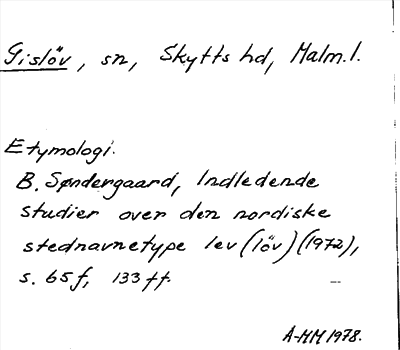 Gislöv, sn, Skytts hd, Malm.l.
Etymologi.
B. Søndergaard, Indledende
studier over den nordiske
stednavnetype lev (löv) (1972),
s. 65 f, 133 ff.
A-MM 1978.